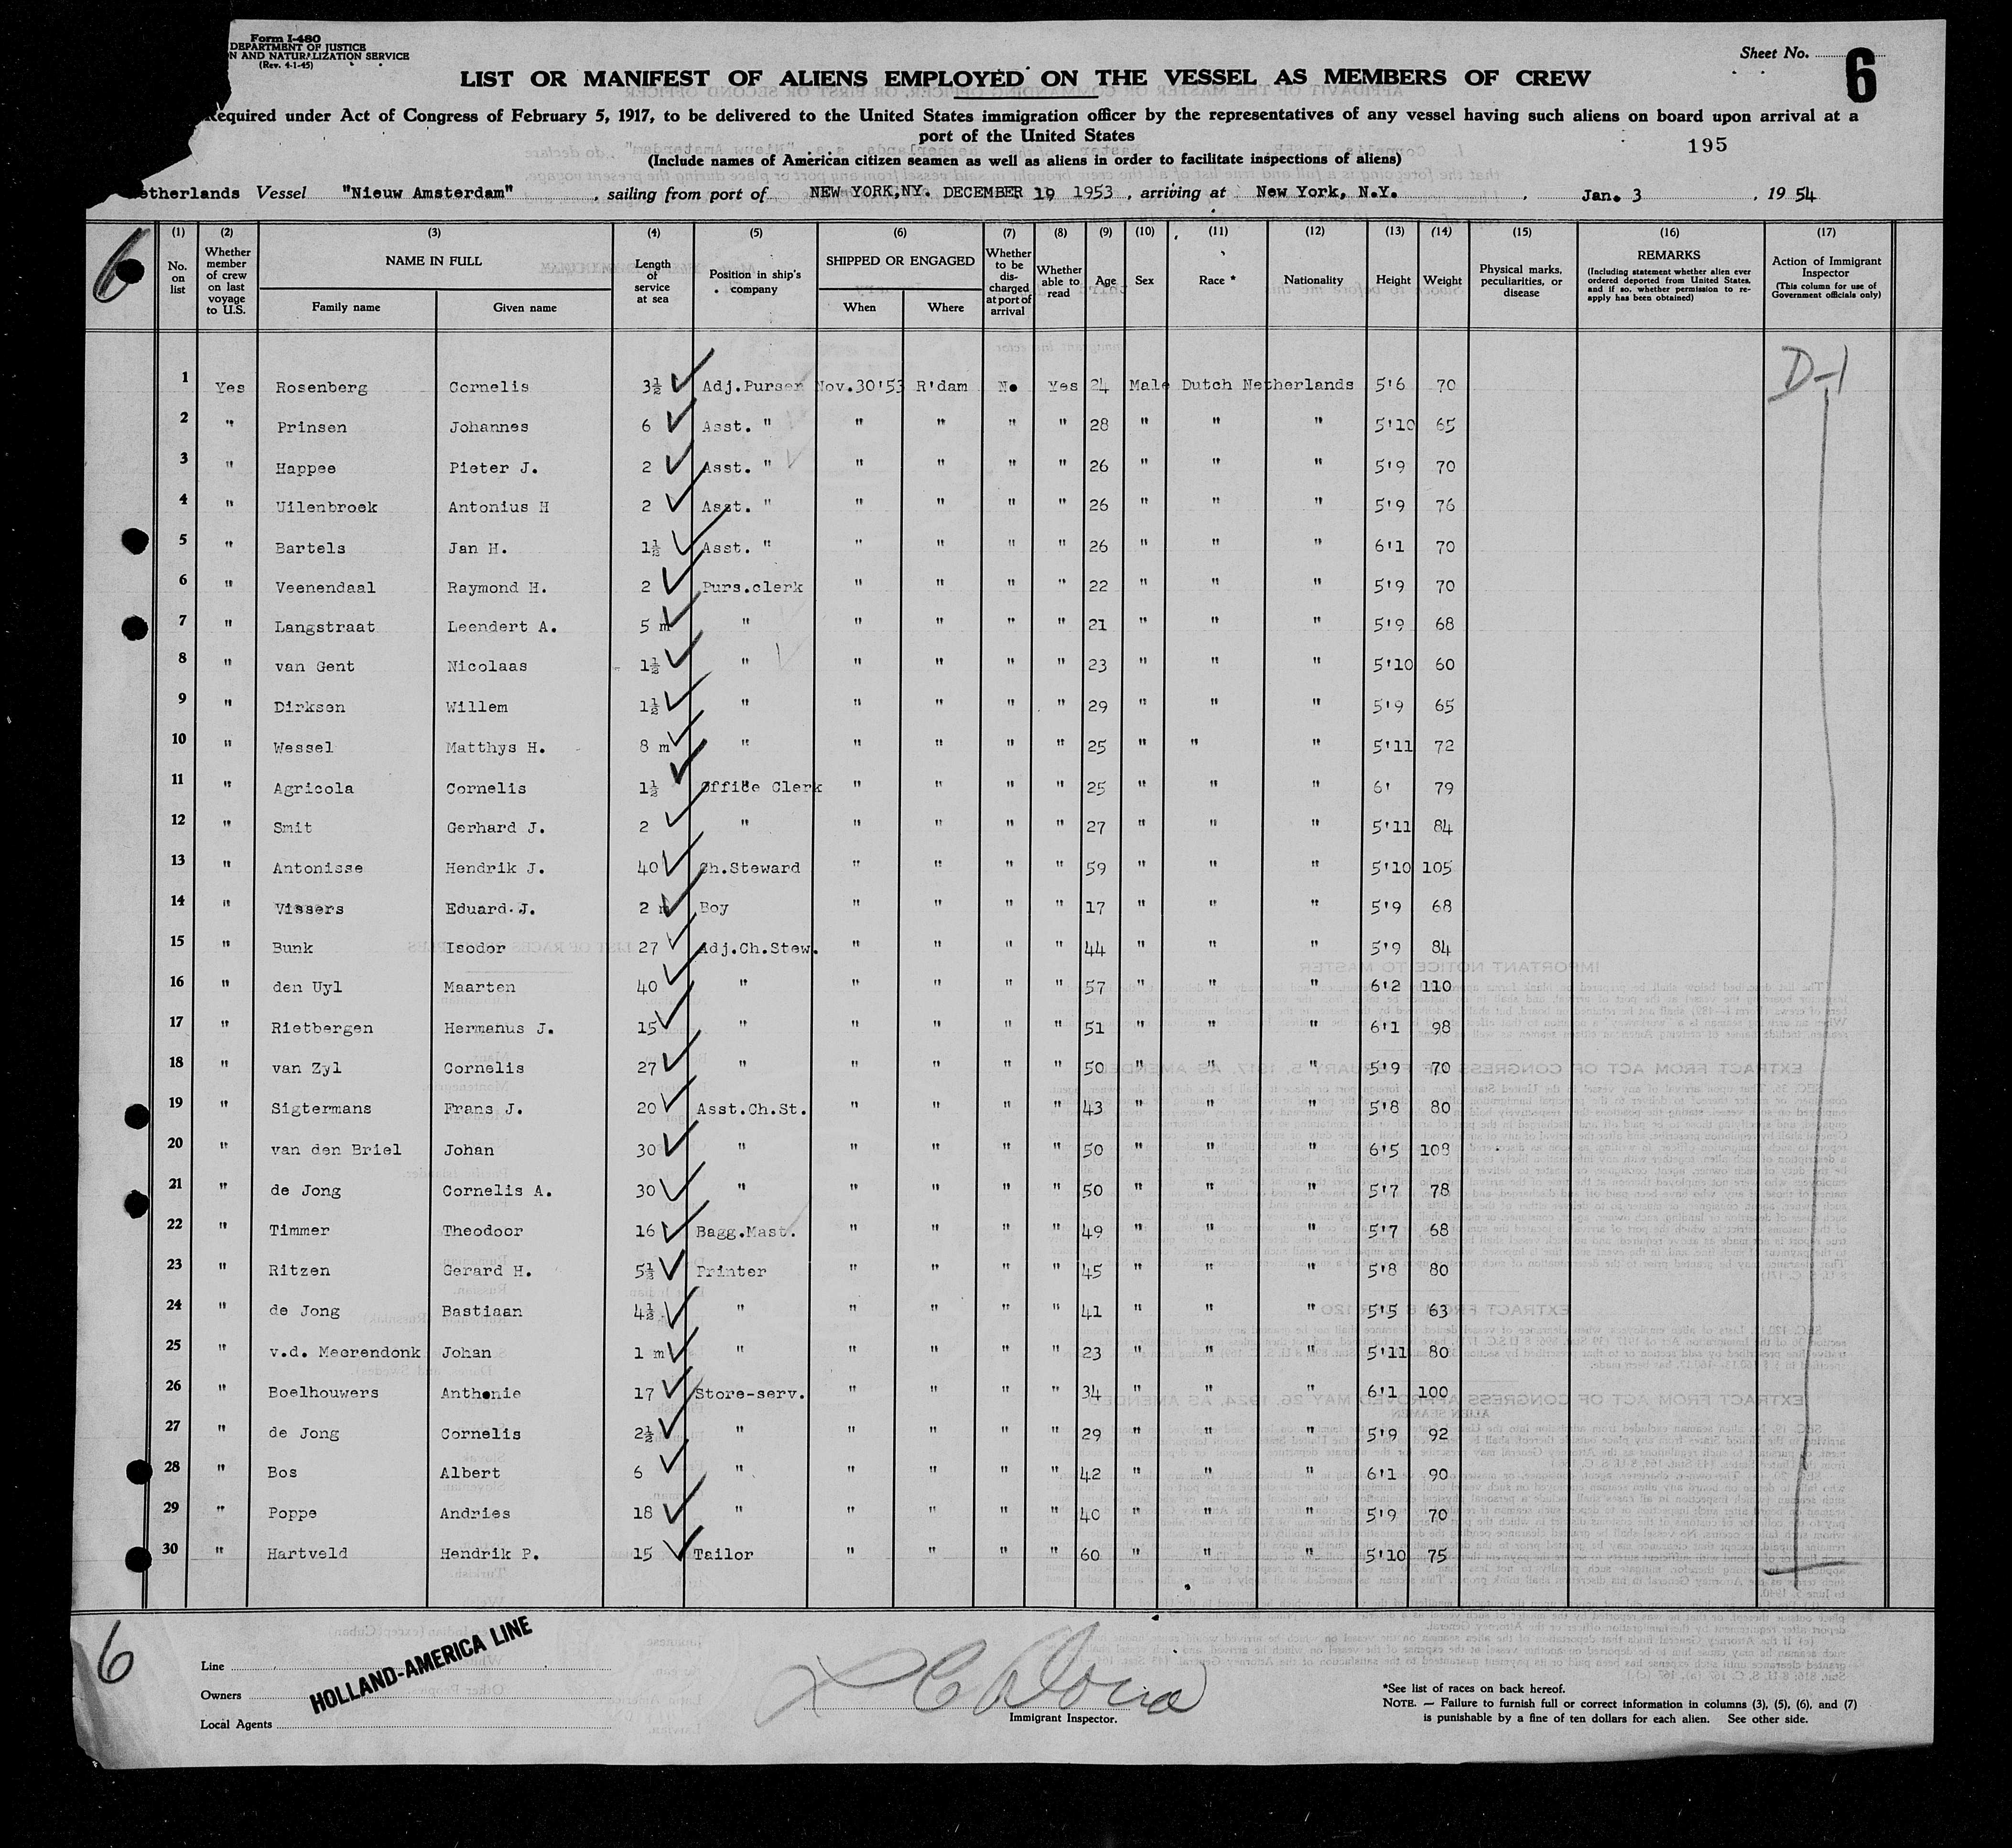 Form I-480
DEPARTMENT OF JUSTICE
N AND NATURALIZATION SERVICE
(Rev. 4-1-45)
Sheet No. 6
LIST OR MANIFEST OF ALIENS EMPLOYED ON THE VESSEL AS MEMBERS OF CREW
Required under Act of Congress of February 5, 1917, to be delivered to the United States immigration officer by the representatives of any vessel having such aliens on board upon arrival at a
port of the United States
195
(Include names of American citizen seamen as well as aliens in order to facilitate inspections of aliens)
etherlands Vessel "Nieuw Amsterdam", sailing from port of NEW YORK,NY. DECEMBER 19 1953, arriving at New York, N.Y., Jan. 3, 19 54
6
(1) (2) (3) (4) (5) (6) (7) (8) (9) (10) (11) (12) (13) (14) (15) (16) (17)
No. on list
Whether member of crew on last voyage to U.S.
NAME IN FULL
Family name Given name
Length of service at sea
Position in ship's company
SHIPPED OR ENGAGED
When Where
Whether to be discharged at port of arrival
Whether able to read
Age Sex Race * Nationality Height Weight
Physical marks, peculiarities, or disease
REMARKS
(Including statement whether alien ever ordered deported from United States, and if so, whether permission to reapply has been obtained)
Action of Immigrant Inspector
(This column for use of Government officials only)
D-1
1 Yes Rosenberg Cornelis 3½ Adj.Purser Nov.30'53 R'dam No Yes 24 Male Dutch Netherlands 5'6 70
2 " Prinsen Johannes 6 Asst. " " " " " 28 " " " 5'10 65
3 " Happee Pieter J. 2 Asst. " " " " " 26 " " " 5'9 70
4 " Uilenbroek Antonius H 2 Asst. " " " " " 26 " " " 5'9 76
5 " Bartels Jan H. 1½ Asst. " " " " " 26 " " " 6'1 70
6 " Veenendaal Raymond H. 2 Purs.clerk " " " " 22 " " " 5'9 70
7 " Langstraat Leendert A. 5 m " " " " " 21 " " " 5'9 68
8 " van Gent Nicolaas 1½ " " " " " 23 " " " 5'10 60
9 " Dirksen Willem 1½ " " " " " 29 " " " 5'9 65
10 " Wessel Matthys H. 8 m " " " " " 25 " " " 5'11 72
11 " Agricola Cornelis 1½ Office Clerk " " " " 25 " " " 6' 79
12 " Smit Gerhard J. 2 " " " " " 27 " " " 5'11 84
13 " Antonisse Hendrik J. 40 Ch.Steward " " " " 59 " " " 5'10 105
14 " Vissers Eduard.J. 2 m Boy " " " " 17 " " " 5'9 68
15 " Bunk Isodor 27 Adj.Ch.Stew. " " " " 44 " " " 5'9 84
16 " den Uyl Maarten 40 " " " " " 57 " " " 6'2 110
17 " Rietbergen Hermanus J. 15 " " " " " 51 " " " 6'1 98
18 " van Zyl Cornelis 27 " " " " " 50 " " " 5'9 70
19 " Sigtermans Frans J. 20 Asst.Ch.St. " " " " 43 " " " 5'8 80
20 " van den Briel Johan 30 " " " " " 50 " " " 6'5 108
21 " de Jong Cornelis A. 30 " " " " " 50 " " " 5'7 78
22 " Timmer Theodoor 16 Bagg.Mast. " " " " 49 " " " 5'7 68
23 " Ritzen Gerard H. 5½ Printer " " " " 45 " " " 5'8 80
24 " de Jong Bastiaan 4½ " " " " " 41 " " " 5'5 63
25 " v.d. Meerendonk Johan 1 m " " " " " 23 " " " 5'11 80
26 " Boelhouwers Anthonie 17 Store-serv. " " " " 34 " " " 6'1 100
27 " de Jong Cornelis 2½ " " " " " 29 " " " 5'9 92
28 " Bos Albert 6 " " " " " 42 " " " 6'1 90
29 " Poppe Andries 18 " " " " " 40 " " " 5'9 70
30 " Hartveld Hendrik P. 15 Tailor " " " " 60 " " " 5'10 75
6
Line
Owners
Local Agents
HOLLAND-AMERICA LINE
Immigrant Inspector.
*See list of races on back hereof.
NOTE. — Failure to furnish full or correct information in columns (3), (5), (6), and (7)
is punishable by a fine of ten dollars for each alien. See other side.